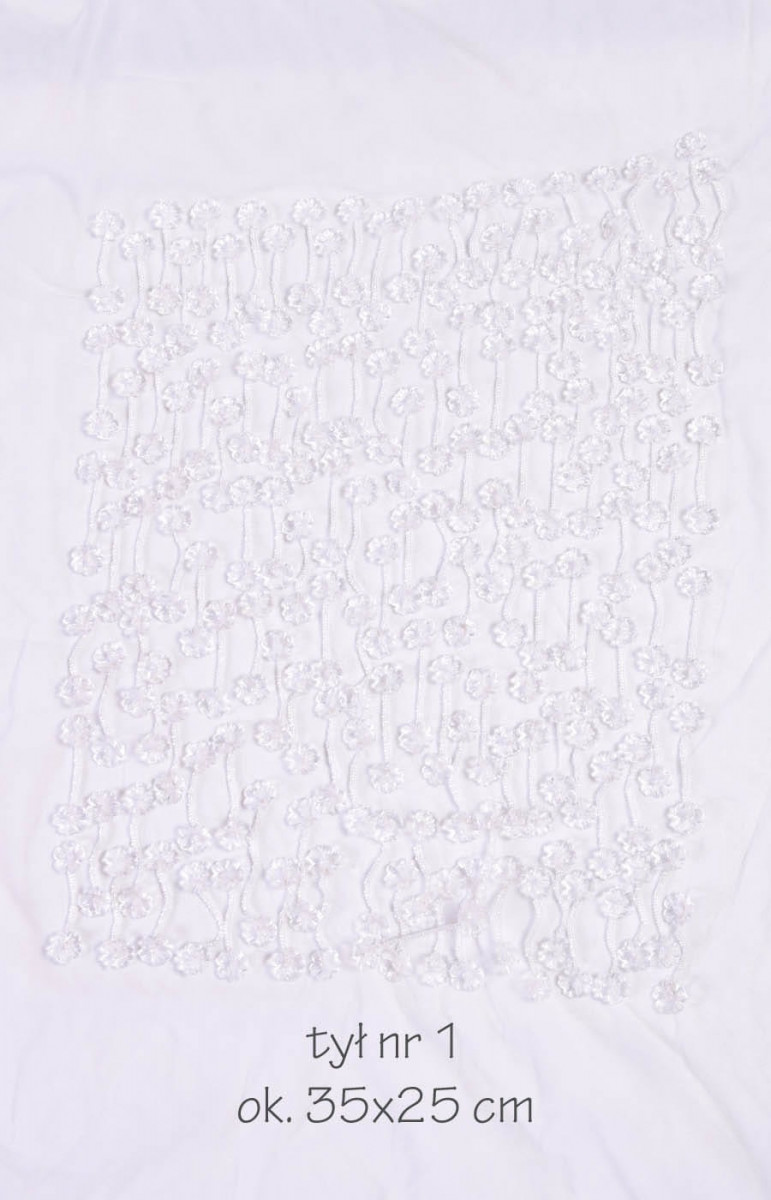 tył nr 1
ok. 35x25 cm